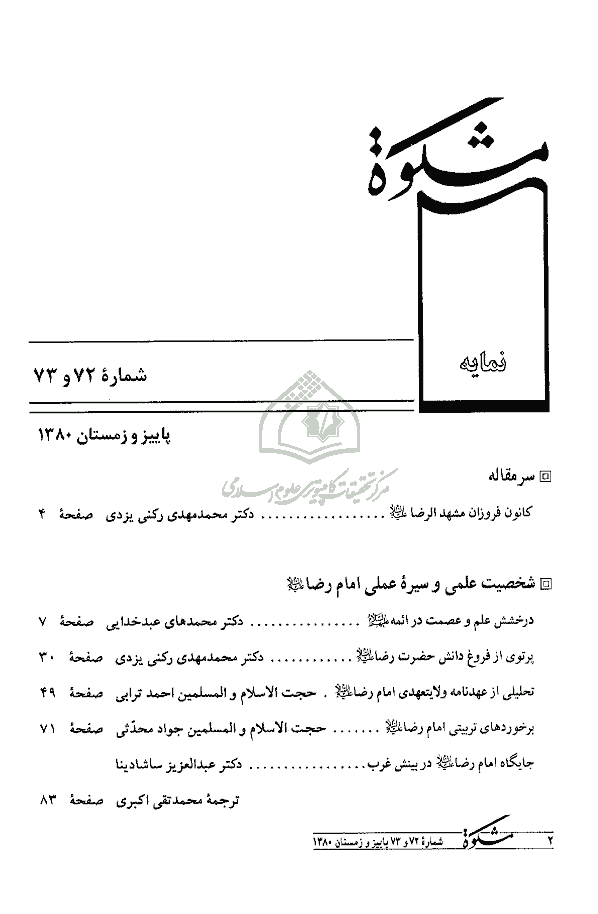 مشکوة
نمایه
شمارهٔ ۷۲ و ۷۳
پاییز و زمستان ۱۳۸۰
مرکز تحقیقات کامپیوتری علوم اسلامی
سرمقاله
کانون فروزان مشهد الرضا علیه‌السلام .................. دکتر محمدمهدی رکنی یزدی صفحهٔ ۴
شخصیت علمی و سیرهٔ عملی امام رضا علیه‌السلام
درخشش علم و عصمت در ائمه علیهم‌السلام ................ دکتر محمدهای عبدخدایی صفحهٔ ۷
پرتوی از فروغ دانش حضرت رضا علیه‌السلام ............ دکتر محمدمهدی رکنی یزدی صفحهٔ ۳۰
تحلیلی از عهدنامه ولایتعهدی امام رضا علیه‌السلام . حجت الاسلام و المسلمین احمد ترابی صفحهٔ ۴۹
برخوردهای تربیتی امام رضا علیه‌السلام ....... حجت الاسلام و المسلمین جواد محدّثی صفحهٔ ۷۱
جایگاه امام رضا علیه‌السلام در بینش غرب ................. دکتر عبدالعزیز ساشادینا
ترجمهٔ محمدتقی اکبری صفحهٔ ۸۳
۲ مشکوة شمارهٔ ۷۲ و ۷۳ پاییز و زمستان ۱۳۸۰